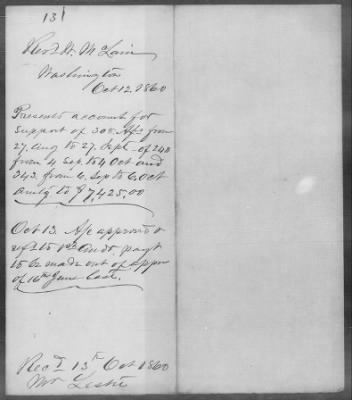 131
Revd W. McLain
Washington
Oct 12, 1860
Presents account for
support of 308 Afs from
27. Aug to 27. Sept. of 240
from 4 Sep. to 4 Oct and
343. from 6. Sep to 6. Oct
amtg to $7,425.00
Oct 13 A/c approved &
refd to 1st Audr. payt
to be made out of appn
of 16th June last.
Recd 13th Oct 1860
Mr Leslie